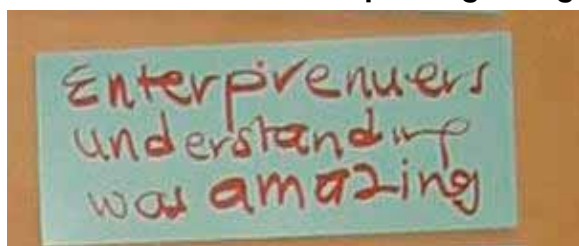 Enterpirenuers
understanding
was amazing